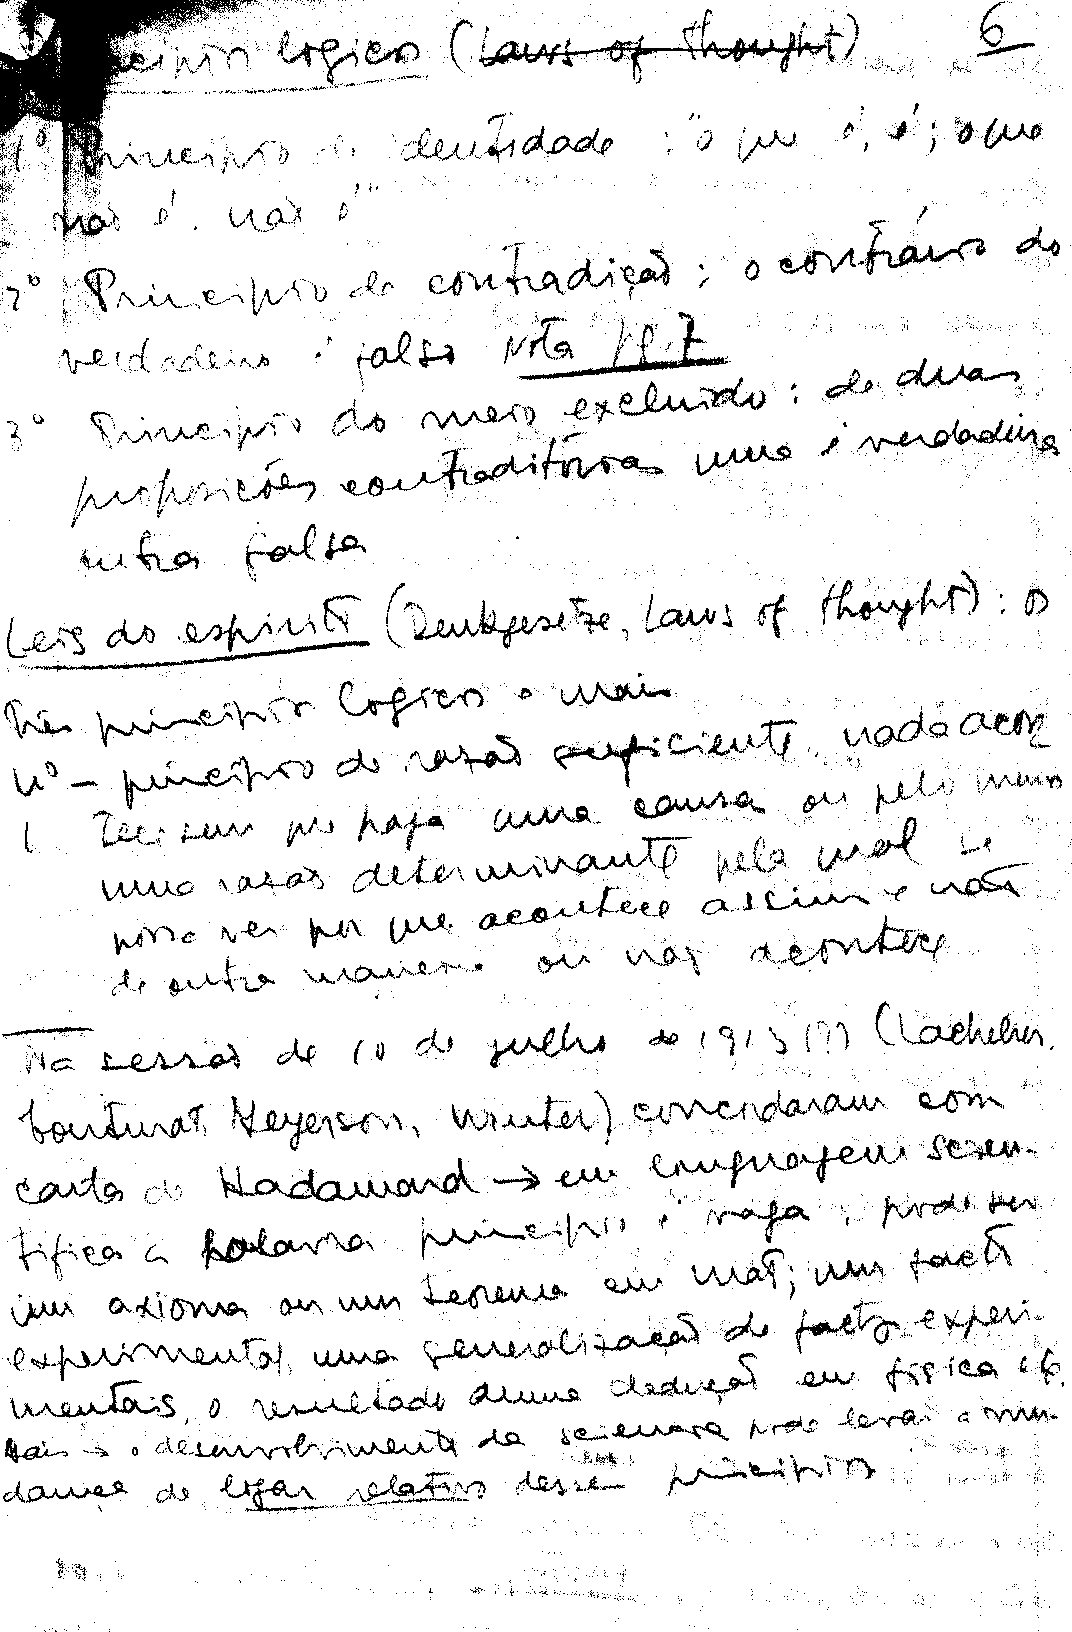 logicos (Laws of thought) 6
1º Principio de identidade : "o que é, é; o que
não é, não é"
2º Principio de contradição : o contrário do
verdadeiro é falso Nota pg. 7
3º Principio do meio excluido : de duas
proposições contraditórias uma é verdadeira
outra falsa
Leis do espirito (Denkgesetze, Laws of thought) : os
três principios logicos e mais
4º – principio de razão suficiente. "nada acon
tece sem que haja uma causa ou pelo menos
uma razão determinante pela qual se
possa ver por que acontece assim e não
de outra maneira ou não acontece
Na sessão de 10 de julho de 191 (Lachelier,
Couturat, Meyerson, Winter) concordaram com
carta de Hadamard → em linguagem scien-
tifica a palavra principio é vaga : pode ser
um axioma ou um teorema em mat; um facto
experimental, uma generalização de factos experi-
mentais, o resultado duma dedução em fisica
mais o desenvolvimento da sciencia pode levar a mu-
dança de lugar relativo desses principios